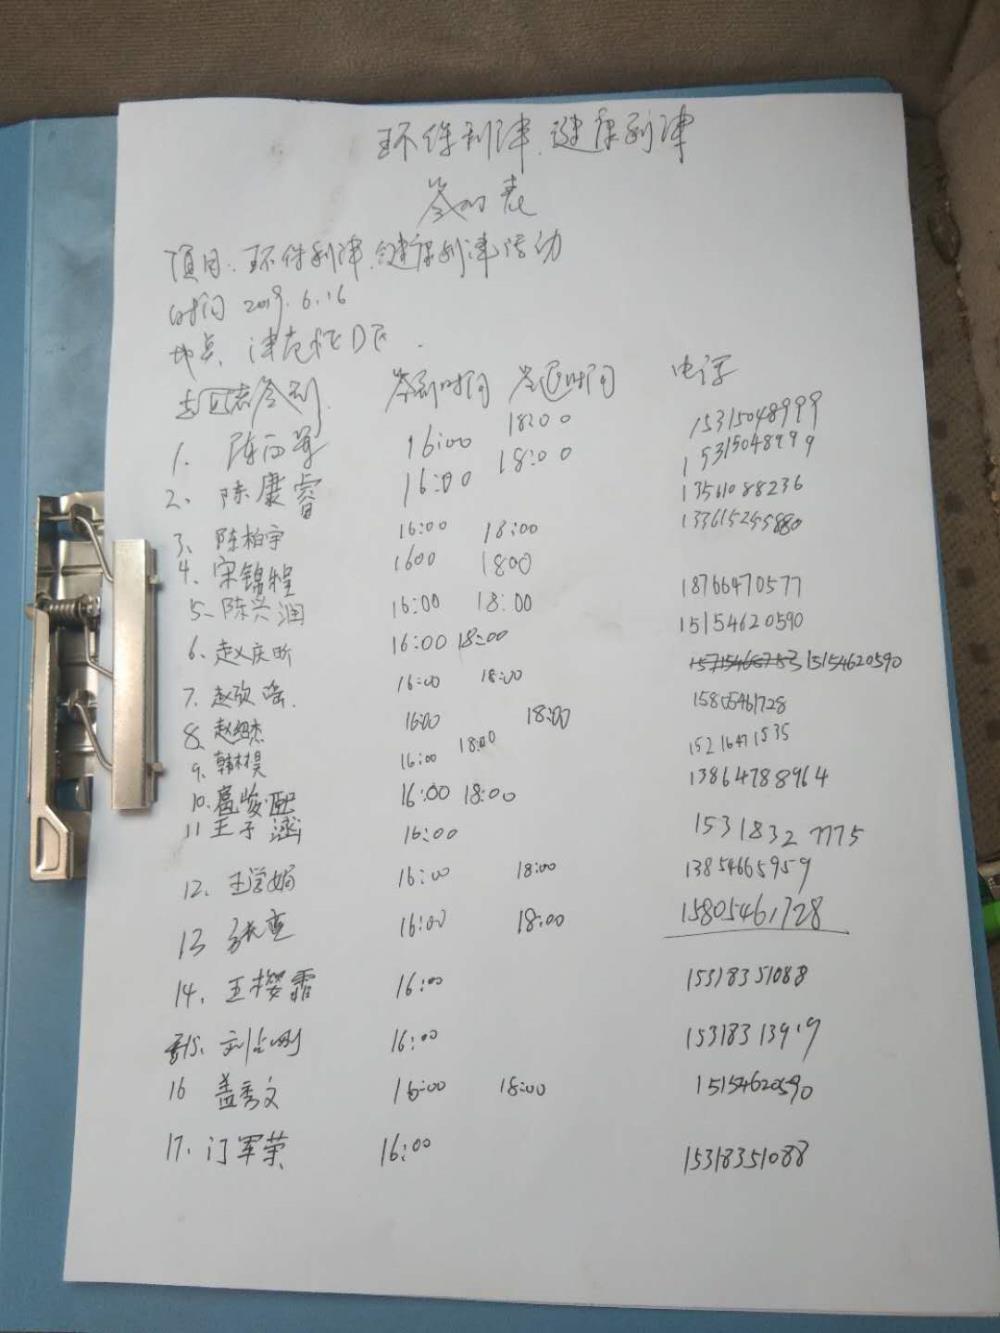 环保利津、健康利津
签到表
项目：环保利津、健康利津活动
时间 2019.6.16
地点、津苑 D区.
志愿者签到 签到时间 签退时间 电话
1. 陈 16:00 18:00 15315048999
2、陈康睿 16:00 18:00 15315048999
3、陈柏宇 16:00 18:00 13561088236
4、宋锦程 1600 1800
5、陈兴润 16:00 18:00 18766470577
6、赵庆昕 16:00 18:00 15154620590
7、赵欣瑶. 16:00 18:00 15154620590
8、赵 16:00 18:00
9、韩林昊 16:00 18:00 15216471535
10、扈峻熙 16:00 18:00 13864788964
11 王子涵 16:00 15318327775
12、王学娟 16:00 18:00 13854665959
13 张 16:00 18:00 15805461728
14、王樱霜 16:00 15318351088
15、刘 16:00
16 盖秀文 16:00 18:00 15154620590
17、门军荣 16:00 15318351088